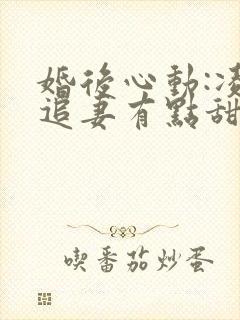 婚後心動:凌
追妻有點甜
喫番茄炒蛋